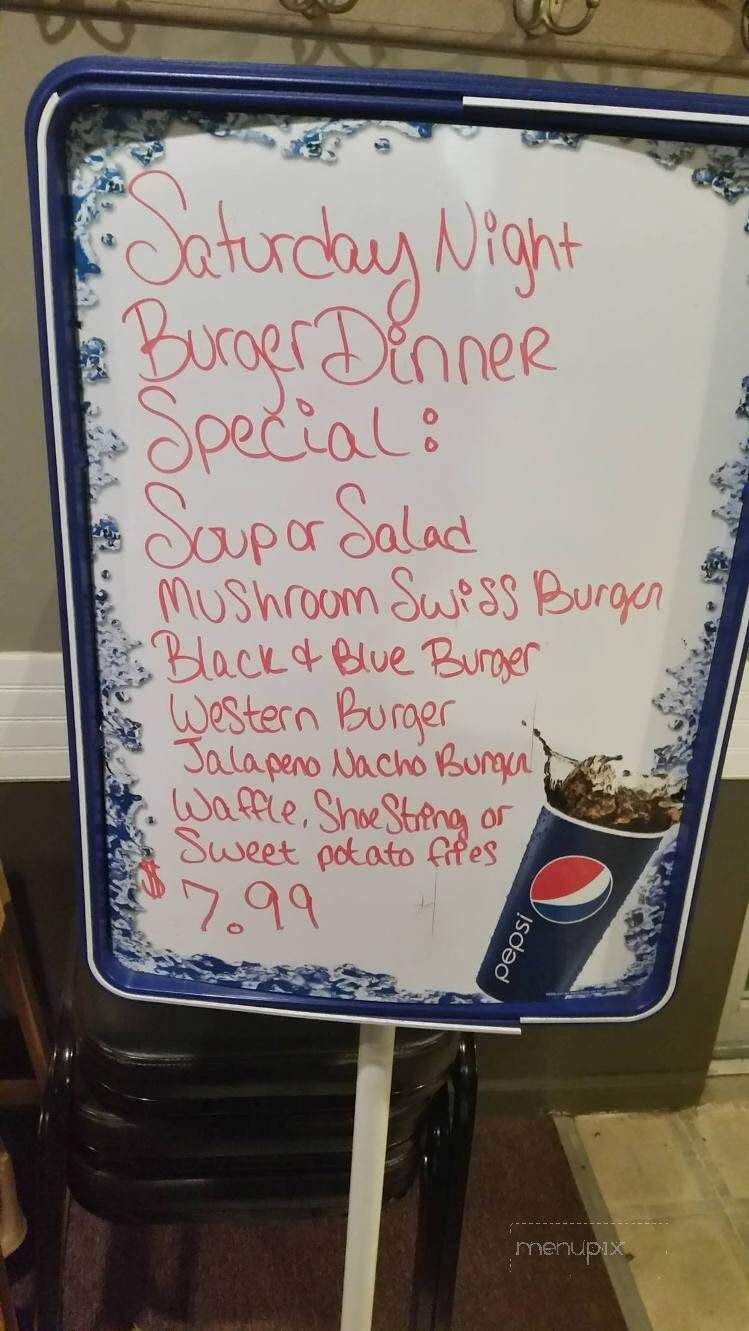 Saturday Night
Burger Dinner
Special:
Soup or Salad
Mushroom Swiss Burger
Black & Blue Burger
Western Burger
Jalapeno Nacho Burger
Waffle, ShoeString or
Sweet potato fries
$ 7.99
pepsi
menupix